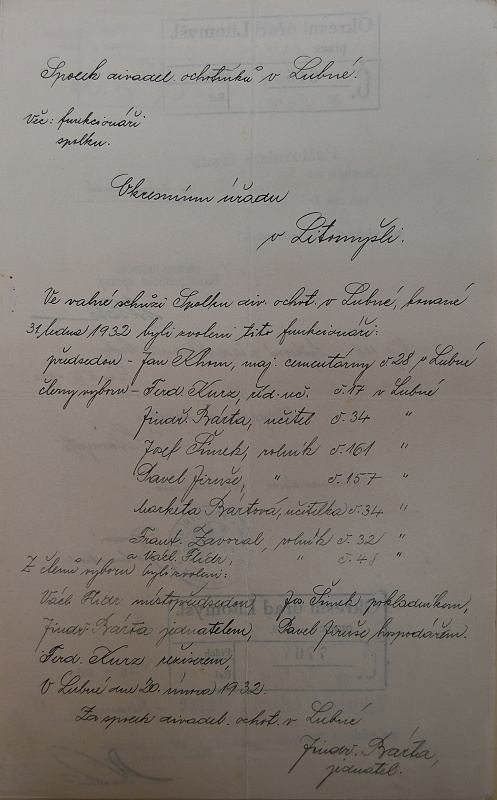 Spolek divadel. ochotníků v Lubné.
Věc: funkcionáři
spolku.
Okresnímu úřadu
v Litomyšli.
Ve valné schůzi Spolku div. ochot. v Lubné, konané
31. ledna 1932 byli zvoleni tito funkcionáři:
předsedou - Jan Chom, maj. cementárny č. 28 v Lubné
členy výboru - Ferd. Kurz, říd. uč. č. 17 v Lubné
Jindř. Bárta, učitel č. 34 "
Josef Šimek, rolník č. 161 "
Pavel Jiruše, " č. 157 "
Markéta Bártová, učitelka č. 34 "
Frant. Zavoral, rolník č. 32 "
a Václ. Flídr, " č. 48 "
Z členů výboru byli zvoleni:
Václ. Flídr místopředsedou, Jos. Šimek pokladníkem,
Jindř. Bárta jednatelem, Pavel Jiruše hospodářem.
Ferd. Kurz režisérem,
V Lubné dne 20. února 1932.
Za spolek divadel. ochot. v Lubné
Jindř. Bárta,
jednatel.